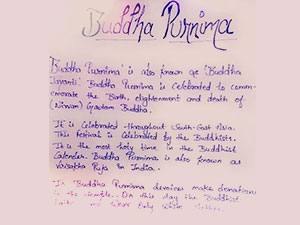 Buddha Purnima
Buddha Purnima is also known as 'Buddha
Jayanti' Buddha Purnima is Celebrated to comm-
emorate the Birth, elightenment and death of
(Nirvan) Gautam Buddha.
It is Celebrated throughout South-East Asia.
This Festival is Celebrated by the Buddhists.
It is the most holy time in the Buddhist
Calender. Buddha Purnima is also known as
Vaisakha Puja in India.
In Buddha Purnima devotees make donations
to the temple. On this day the Buddhist
wear only white